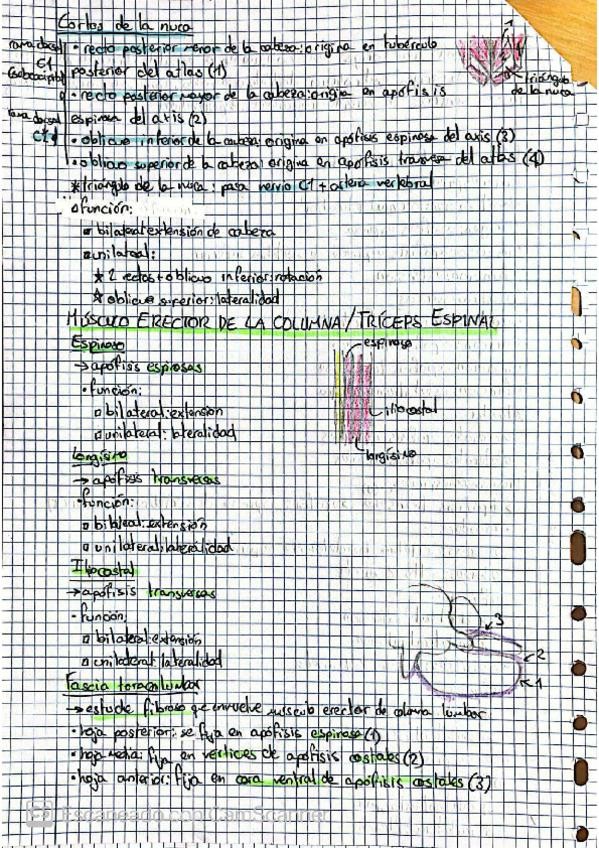 Cortos de la nuca
rama dorsal C1 (suboccipital)
• recto posterior menor de la cabeza: origina en tubérculo
posterior del atlas (1)
• recto posterior mayor de la cabeza: origina en apófisis
rama dorsal
espinosa del axis (2)
• oblicuo inferior de la cabeza: origina en apófisis espinosa del axis (3)
• oblicuo superior de la cabeza: origina en apófisis transversa del atlas (4)
* triángulo de la nuca: pasa nervio C1 + arteria vertebral
1
triángulo de la nuca
función:
bilateral: extensión de cabeza
unilateral:
* 2 rectos + oblicuo inferior: rotación
* oblicuo superior: lateralidad
MÚSCULO ERECTOR DE LA COLUMNA / TRÍCEPS ESPINAL
Espinoso
→ apófisis espinosas
• función:
bilateral: extensión
unilateral: lateralidad
espinoso
iliocostal
longísimo
Longísimo
→ apófisis transversas
• función:
bilateral: extensión
unilateral: lateralidad
Iliocostal
→ apófisis transversas
• función:
bilateral: extensión
unilateral: lateralidad
3
2
1
Fascia toracolumbar
→ estuche fibroso que envuelve músculo erector de columna lumbar
• hoja posterior: se fija en apófisis espinosa (1)
• hoja media: fija en vértices de apófisis costales (2)
• hoja anterior: fija en cara ventral de apófisis costales (3)
CS Escaneado con CamScanner